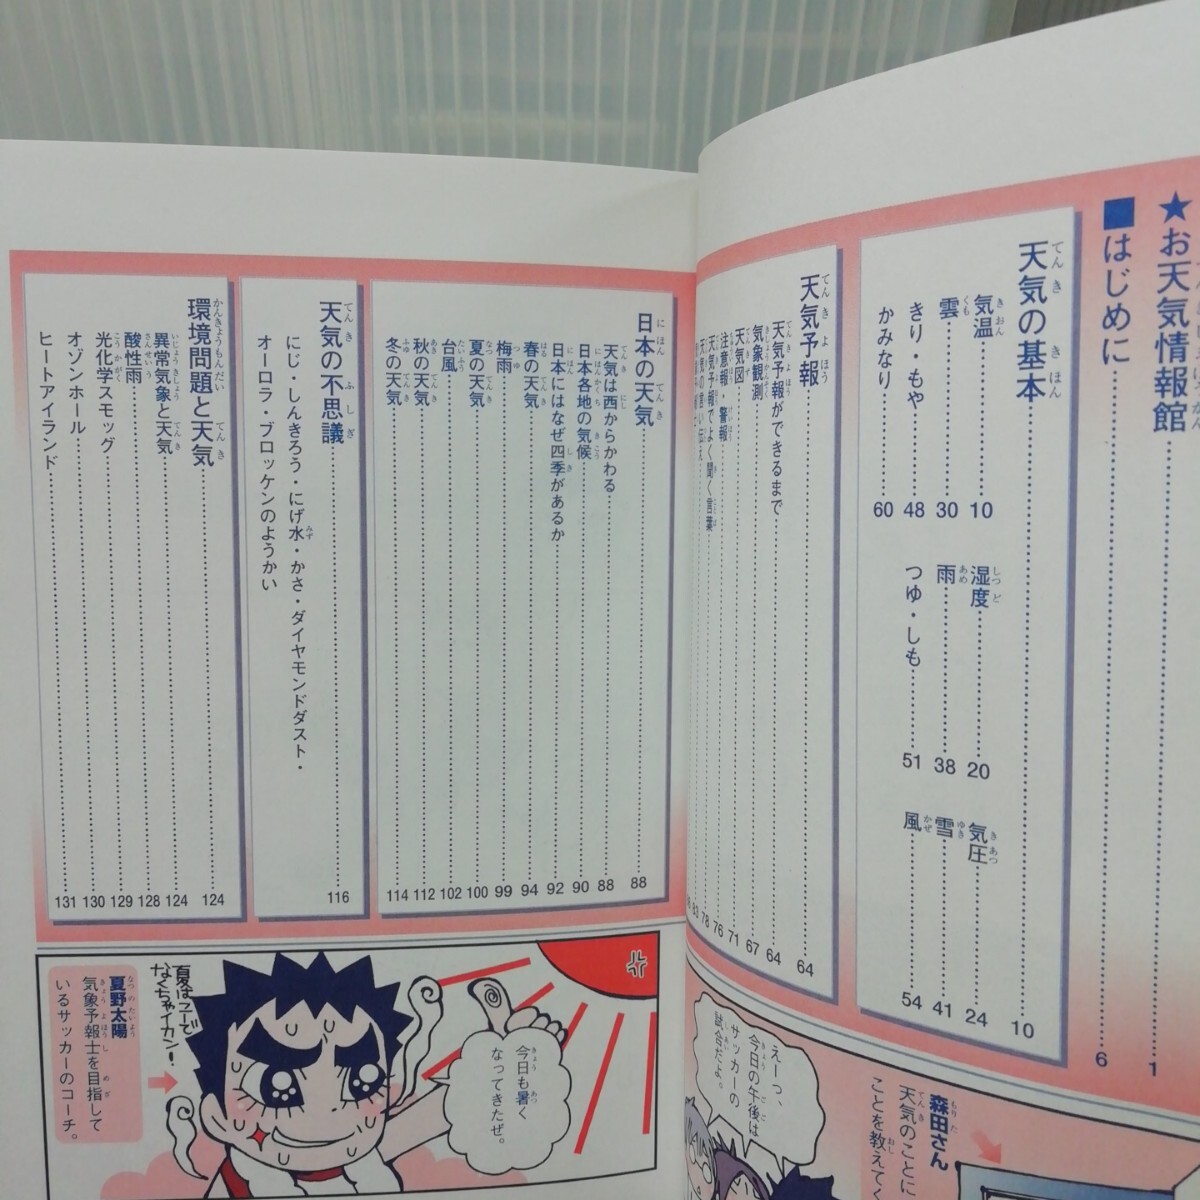 ★お天気情報館……1
■はじめに……6
天気の基本……10
気温……10
湿度……20
気圧……24
雲……30
雨……38
雪……41
きり・もや……48
つゆ・しも……51
風……54
かみなり……60
天気予報……64
天気予報ができるまで……64
気象観測……67
天気図……71
注意報・警報……76
天気予報でよく聞く言葉……78
天気の言い伝え……83
日本の天気……88
天気は西からかわる……88
日本各地の気候……90
日本にはなぜ四季があるか……92
春の天気……94
梅雨……99
夏の天気……100
台風……102
秋の天気……112
冬の天気……114
天気の不思議……116
にじ・しんきろう・にげ水・かさ・ダイヤモンドダスト・
オーロラ・ブロッケンのようかい
環境問題と天気……124
異常気象と天気……124
酸性雨……128
光化学スモッグ……129
オゾンホール……130
ヒートアイランド……131
森田さん
天気のことに
ことを教えてく
えーっ、
今日の午後は
サッカーの
試合だよ。
今日も暑く
なってきたぜ。
夏はこうで
なくちゃイカン!
夏野太陽
気象予報士を目指して
いるサッカーのコーチ。